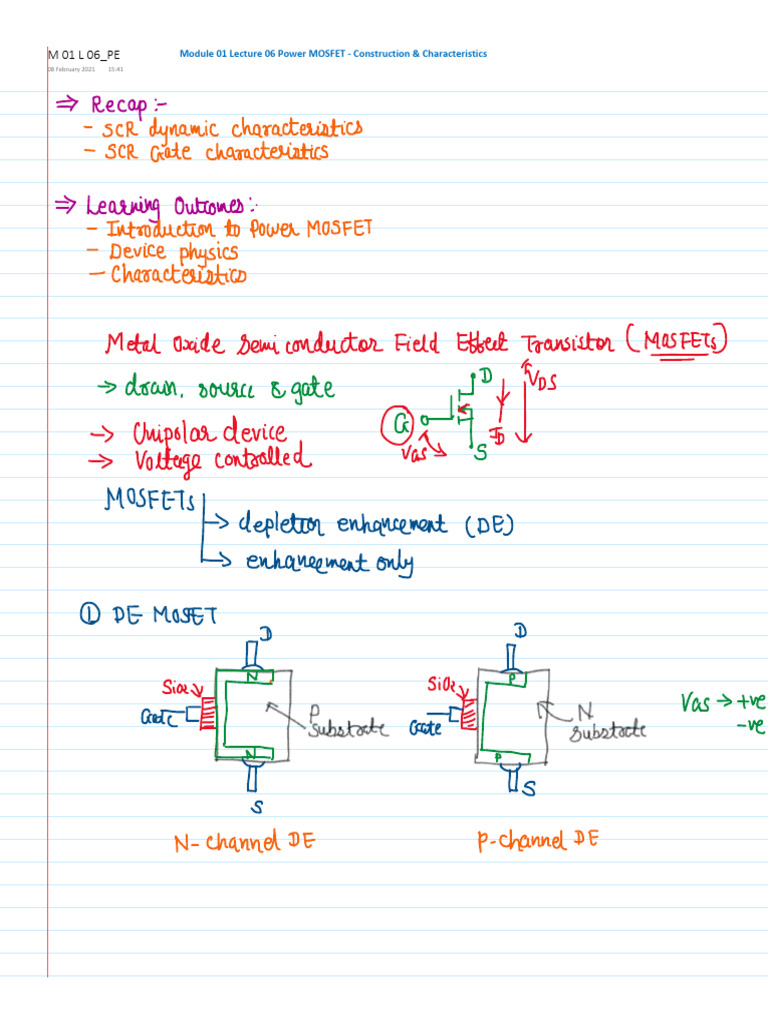 M 01 L 06_PE
Module 01 Lecture 06 Power MOSFET - Construction & Characteristics
08 February 2021 15:41
⇒ Recap :-
- SCR dynamic characteristics
- SCR Gate characteristics
⇒ Learning Outcomes :-
- Introduction to Power MOSFET
- Device physics
- Characteristics
Metal Oxide Semiconductor Field Effect Transistor (MOSFETs)
→ drain, source & gate
D
VDS
G
ID
→ Unipolar device
VGS
S
→ Voltage controlled
MOSFETs
→ depletion enhancement (DE)
→ enhancement only
① DE MOSFET
D
D
N
P
SiO2
SiO2
Gate
P
Substrate
Gate
N
Substrate
VGS → +ve
-ve
N
P
S
S
N-channel DE
P-channel DE